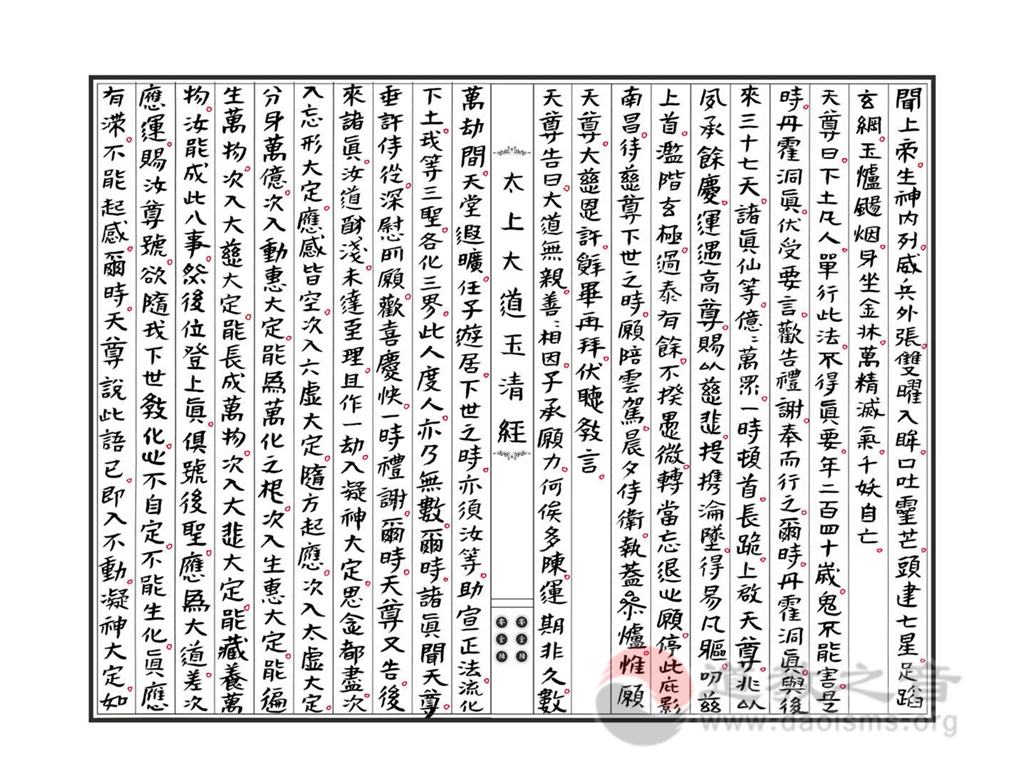 聞上乘生神内列威兵外張雙曜入眸口吐靈芒頭建七星足蹈
玄綱玉爐颺烟身坐金牀萬精滅氣千妖自亡
天尊曰下土凡人單行此法不得眞要年二百四十歲鬼不能害是
時丹霍洞眞伏受要言歡告禮謝奉而行之爾時丹霍洞眞與後
來三十七天諸眞仙等億〻萬衆一時頓首長跪上啟天尊兆以
夙承餘慶運遇高尊賜以慈悲提携淪墜得易凡軀叨兹
上首濫階玄極過泰有餘不揆愚微轉當忘退心願停此庇影
南昌待慈尊下世之時願陪雲駕晨夕侍衛執蓋叅爐惟願
天尊大慈恩許辭畢再拜伏聽教言
天尊告曰大道無親善〻相因子承願力何俟多陳運期非久數
太上大道玉清經
萬劫間天堂遐曠任子遊居下世之時亦須汝等助宣正法流化
下土我等三聖各化三界此人度人亦乃無數爾時諸眞聞天尊
垂許侍從深慰所願歡喜慶快一時禮謝爾時天尊又告後
來諸眞汝道尚淺未達至理且作一劫入凝神大定思念都盡次
入忘形大定應感皆空次入六虛大定隨方起應次入太虛大定
分身萬億次入動惠大定能爲萬化之根次入生惠大定能遍
生萬物次入大慈大定能長成萬物次入大悲大定能藏養萬
物汝能成此八事然後位登上眞俱號後聖應爲大道差次
應運賜汝尊號欲隨我下世教化心不自定不能生化眞應
有滯不能起感爾時天尊說此語已即入不動凝神大定如
道教之音
www.daoisms.org